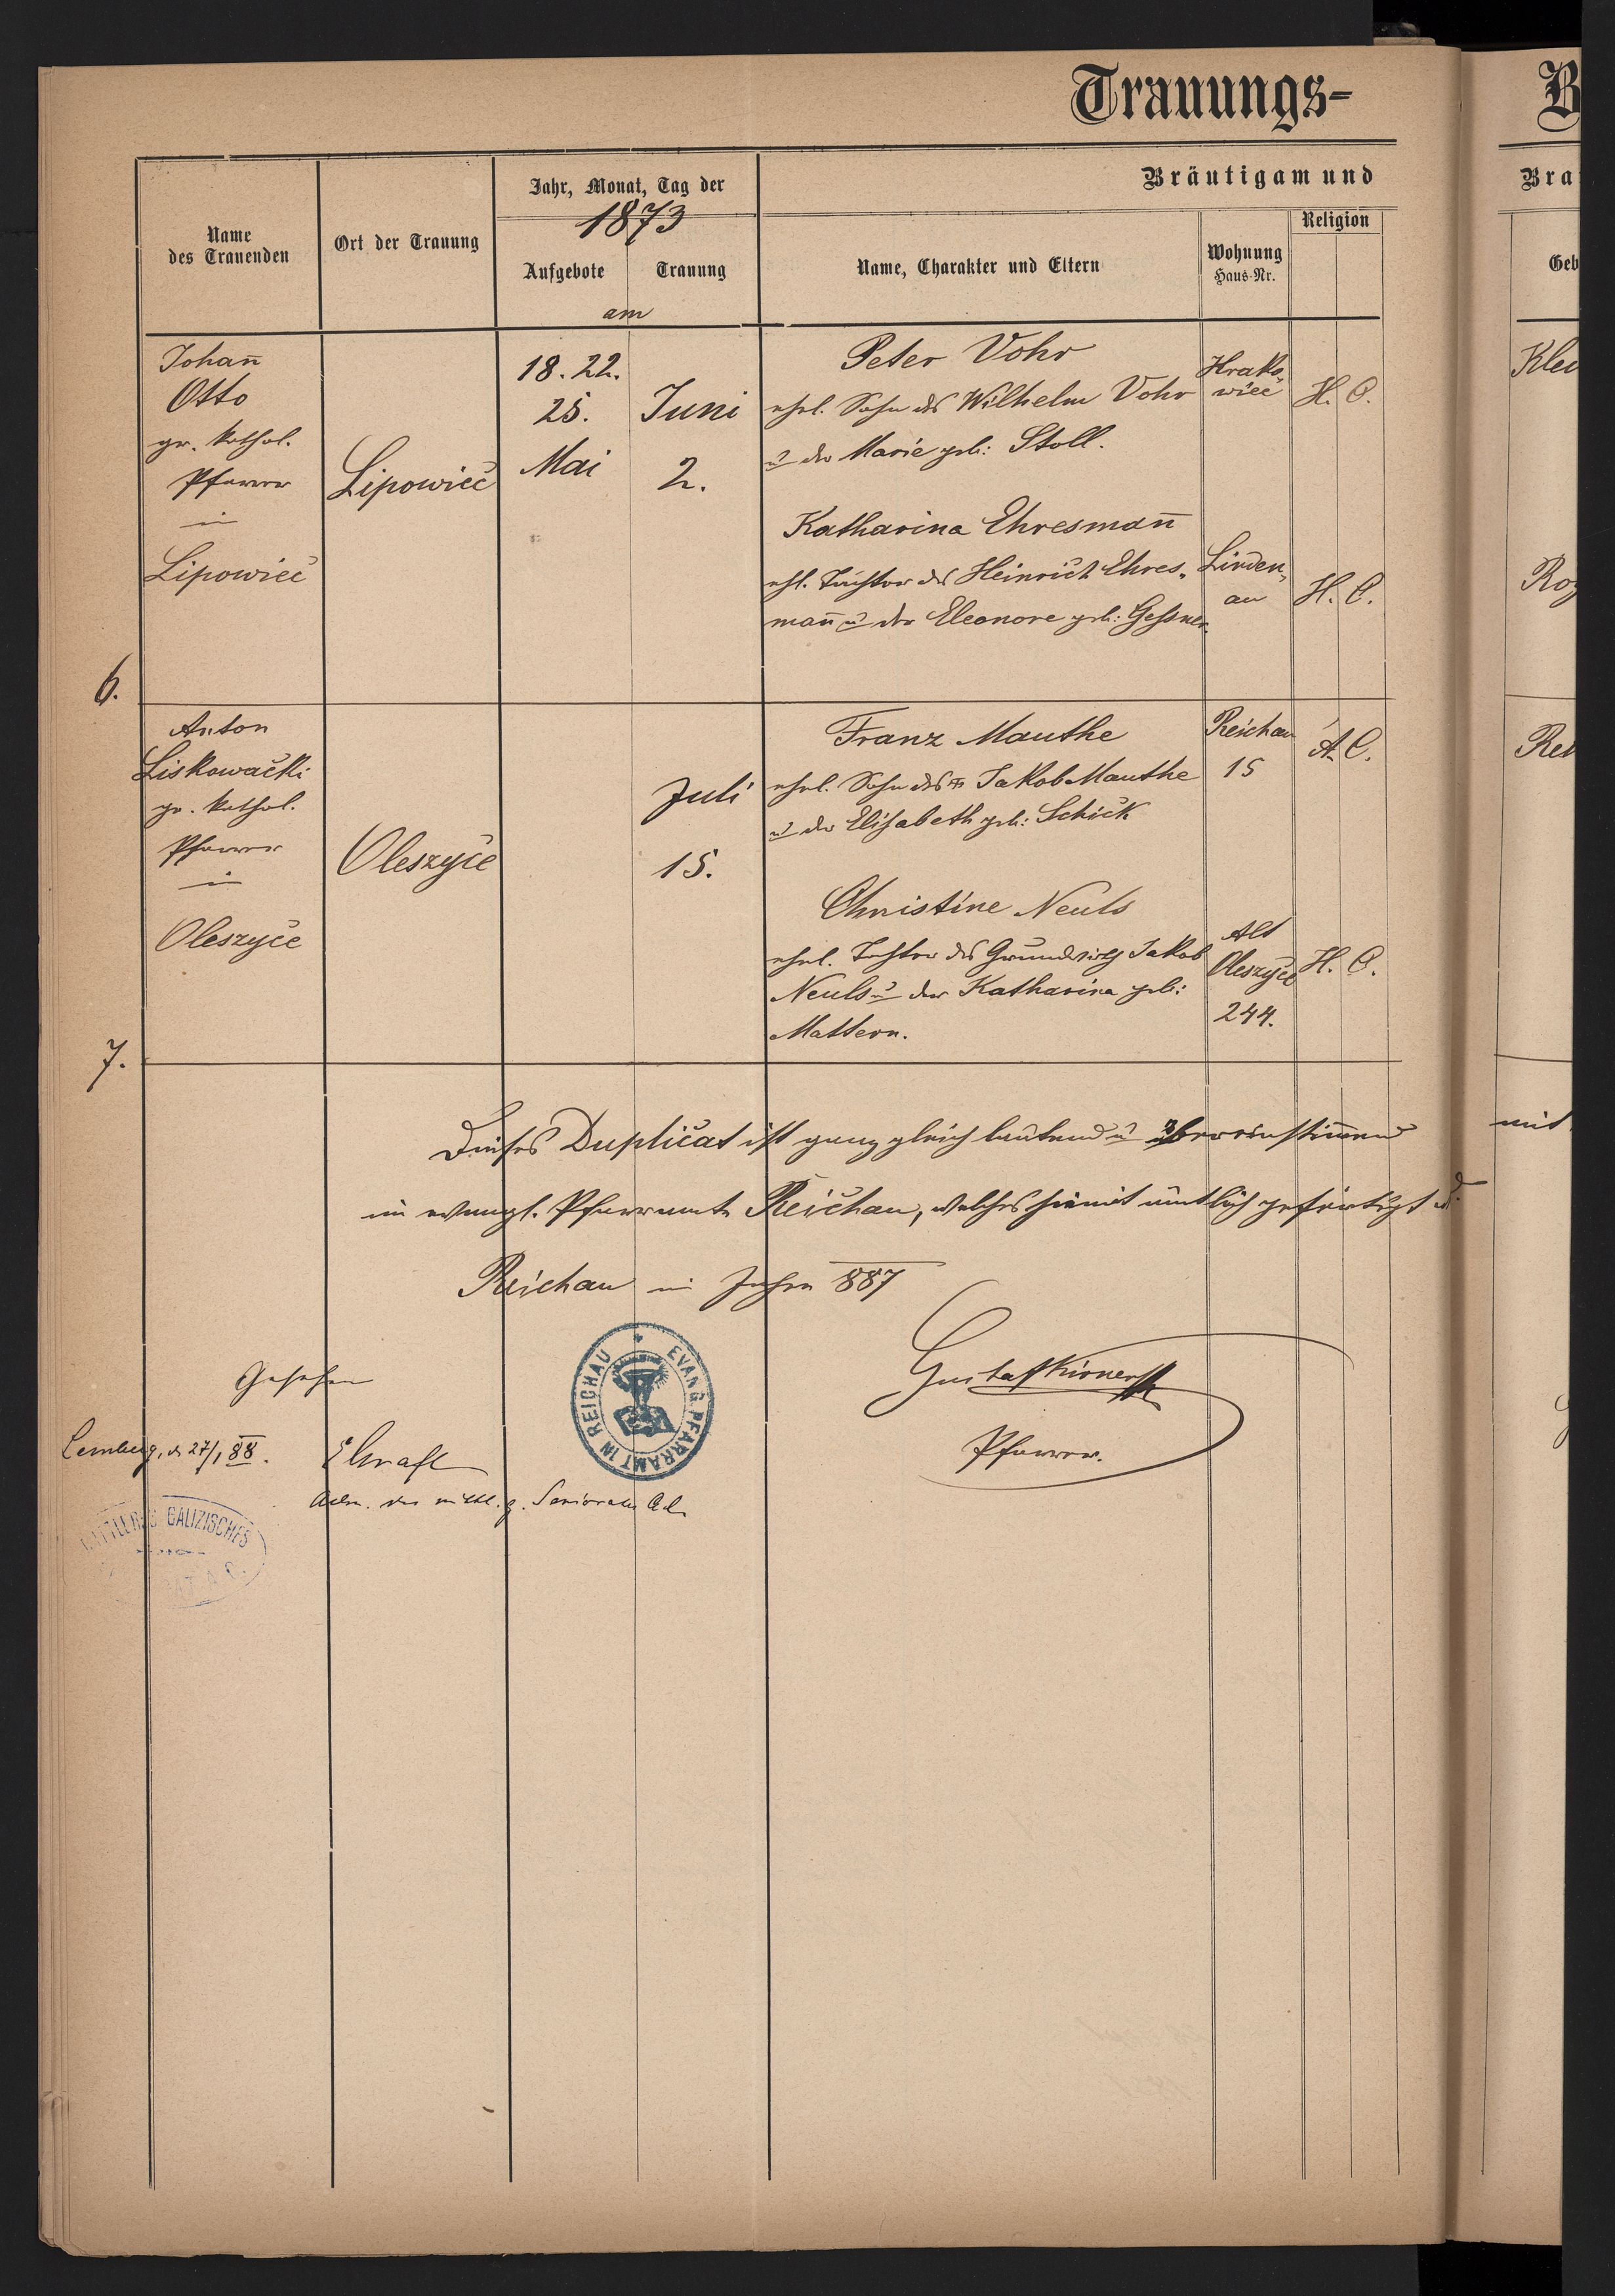 Trauungs-
Name
des Trauenden
Ort der Trauung
Jahr, Monat, Tag der
1873
Aufgebote
Trauung
am
Bräutigam und
Name, Charakter und Eltern
Wohnung
Haus-Nr.
Religion
6.
Johan̄
Otto
gr. kathol.
Pfarrer
in
Lipowiec
Lipowiec
18. 22.
25.
Mai
Juni
2.
Peter Vohr
ehel. Sohn des Wilhelm Vohr
u der Marie geb: Stoll.
Hrako,
wiec
H. C.
Katharina Ehresman̄
ehl. Tochter des Heinrich Ehres,
man̄ u der Eleonore geb: Gessner.
Linden,
au
H. C.
7.
Anton
Liskowacki
gr. kathol.
Pfarrer
in
Oleszyce
Oleszyce
Juli
15.
Franz Mauthe
ehel. Sohn des Jakob Mauthe
u der Elisabeth geb: Schick
Reichau
15
A. C.
Christine Neuls
ehel. Tochter des Grundwirths Jakob
Neuls u der Katharina geb:
Mattern.
Alt
Oleszyce
244.
H. C.
Dieses Duplicat ist ganz gleich lautend u übereinstim̄end
im evangl. Pfarramte Reichau, welches hiemit amtlich gefertigt
Reichau im Jahre 887
Gustaf
Pfarrer.
EVANG. PFARRAMT IN REICHAU
Gesehen
Lemberg, d. 27/1 88.
Adm. des mittl. g. Seniorates A.C.
MITTLERES GALIZISCHES
A. C.
B
Bra
Geb
Klei
Roz
Rei
mit